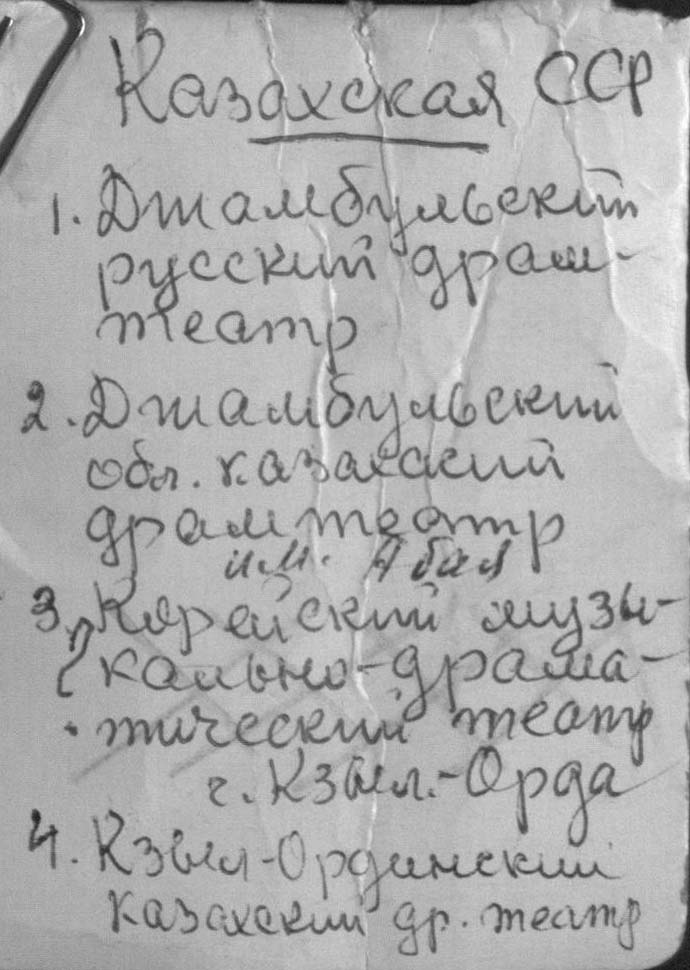 Казахская ССР
1. Джамбульский
русский драм-
театр
2. Джамбульский
обл. казахский
драмтеатр
им. Абая
3. Корейский музы-
кально-драма-
тический театр
г. Кзыл-Орда
4. Кзыл-Ординский
казахский др. театр